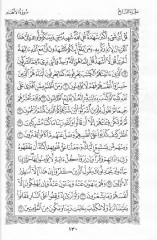 الجزء السابع
سورة الأنعام
قل أي شيء أكبر شهادة قل الله شهيد بيني وبينكم وأوحي إلي
هذا القرءان لأنذركم به ومن بلغ أئنكم لتشهدون أن مع الله
ءالهة أخرى قل لا أشهد قل إنما هو إله واحد وإنني بريء مما
تشركون ١٩ الذين ءاتينهم الكتب يعرفونه كما يعرفون
أبناءهم الذين خسروا أنفسهم فهم لا يؤمنون ٢٠ ومن
أظلم ممن افترى على الله كذبا أو كذب بءايته إنه لا يفلح
الظلمون ٢١ ويوم نحشرهم جميعا ثم نقول للذين أشركوا
أين شركاؤكم الذين كنتم تزعمون ٢٢ ثم لم تكن فتنتهم
إلا أن قالوا والله ربنا ما كنا مشركين ٢٣ انظر كيف كذبوا
على أنفسهم وضل عنهم ما كانوا يفترون ٢٤ ومنهم من يستمع
إليك وجعلنا على قلوبهم أكنة أن يفقهوه وفي ءاذانهم وقرا
وإن يروا كل ءاية لا يؤمنوا بها حتى إذا جاءوك يجدلونك يقول
الذين كفروا إن هذا إلا أسطير الأولين ٢٥ وهم ينهون عنه
وينءون عنه وإن يهلكون إلا أنفسهم وما يشعرون ٢٦ ولو ترى إذ وقفوا على النار فقالوا
يليتنا نرد ولا نكذب بءايت ربنا ونكون من المؤمنين ٢٧
١٣٠